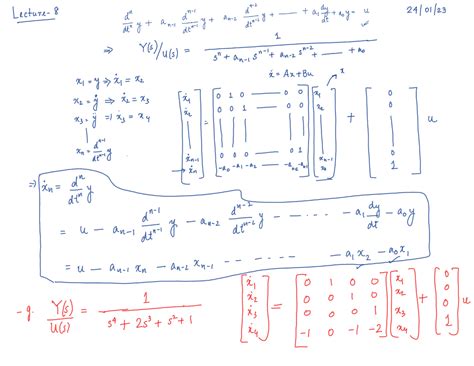 Lecture-8
24/01/23
d^n/dt^n y + a_{n-1} d^{n-1}/dt^{n-1} y + a_{n-2} d^{n-2}/dt^{n-2} y + ------ + a_1 dy/dt + a_0 y = u
⇒ Y(s)/U(s) = 1 / (s^n + a_{n-1} s^{n-1} + a_{n-2} s^{n-2} + ---- + a_0)
ẋ = Ax + Bu
x_1 = y ⇒ ẋ_1 = x_2
x_2 = ẏ ⇒ ẋ_2 = x_3
x_3 = ÿ ⇒ ẋ_3 = x_4
x_n = d^{n-1}/dt^{n-1} y
[ẋ_1 ẋ_2 | ẋ_{n-1} ẋ_n] = [0 1 0 --- 0 0; 0 0 1 --- 0 0; 0 0 0 --- 0 1; -a_0 -a_1 --- -a_{n-2} -a_{n-1}] [x_1 x_2 | x_{n-1} x_n] + [0 0 | 0 1] u
x
⇒ ẋ_n = d^n/dt^n y
= u - a_{n-1} d^{n-1}/dt^{n-1} y - a_{n-2} d^{n-2}/dt^{n-2} y - ------ - a_1 dy/dt - a_0 y
= u - a_{n-1} x_n - a_{n-2} x_{n-1} - ------ - a_1 x_2 - a_0 x_1
-g. Y(s)/U(s) = 1 / (s^4 + 2s^3 + s^2 + 1)
[ẋ_1 ẋ_2 ẋ_3 ẋ_4] = [0 1 0 0; 0 0 1 0; 0 0 0 1; -1 0 -1 -2] [x_1 x_2 x_3 x_4] + [0 0 0 1] u